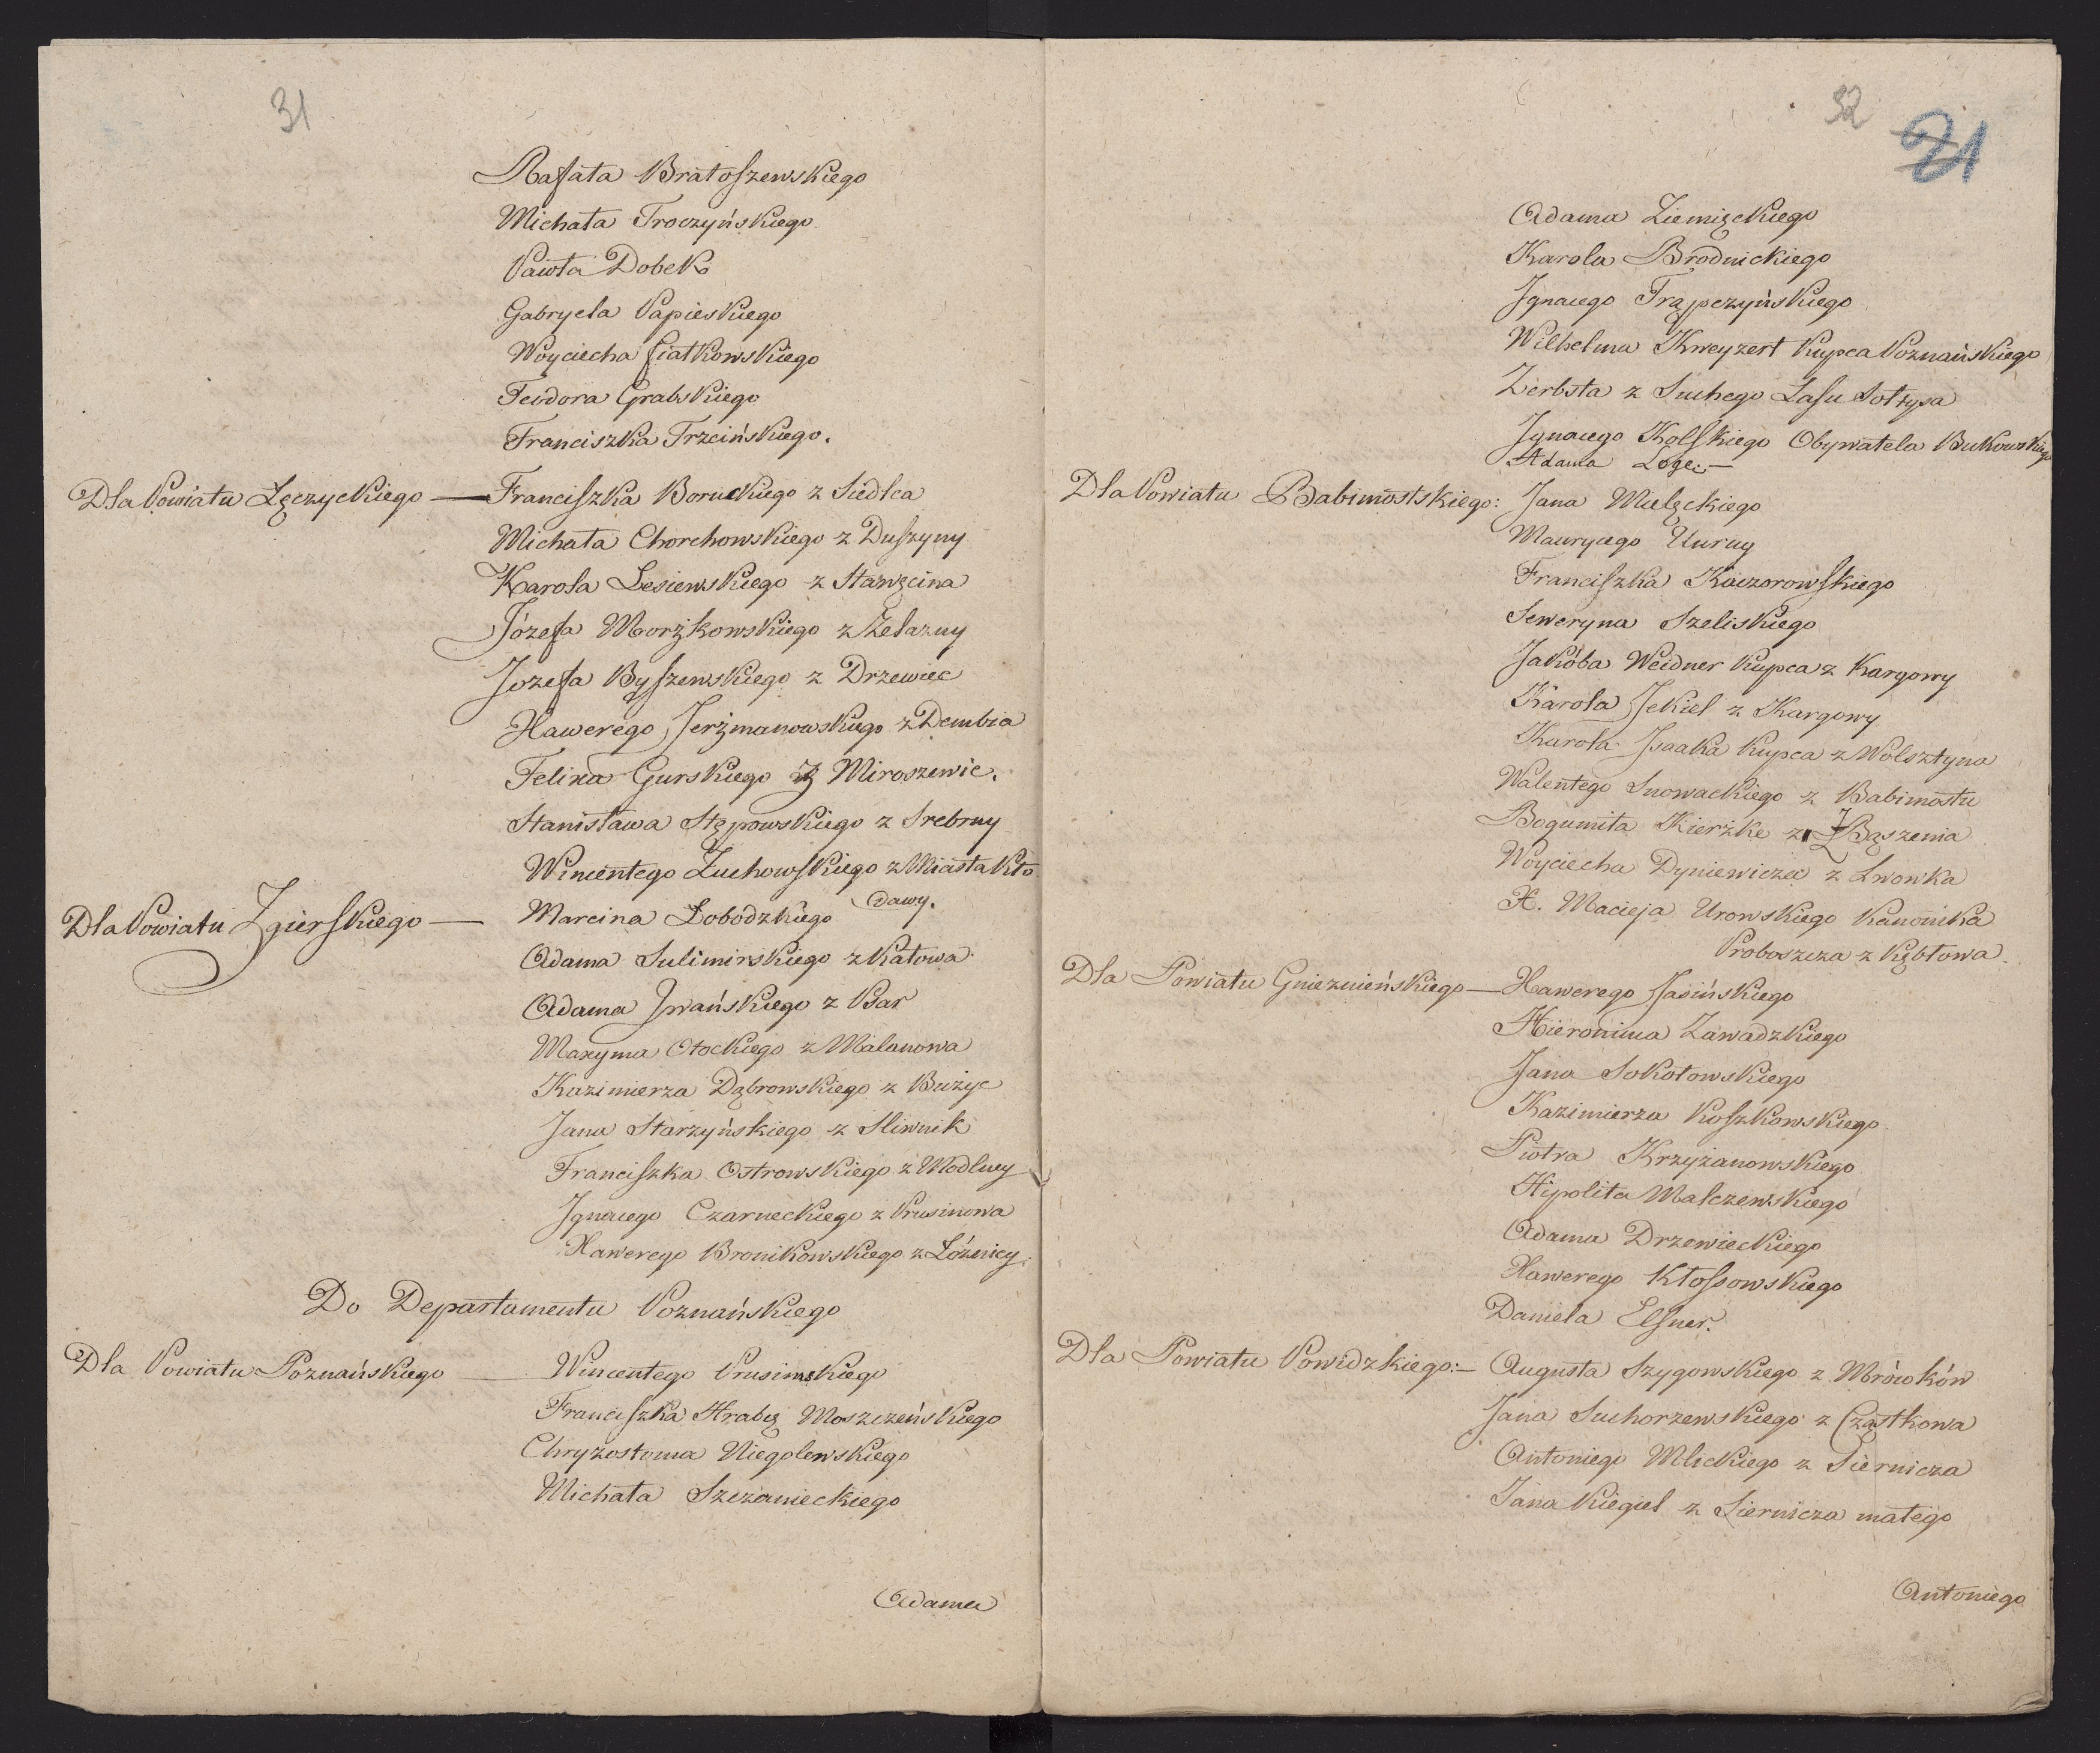 31
Rafała Bratoszewskiego
Michała Troczyńskiego
Pawła Dobek
Gabryela Papieskiego
Woyciecha Fiatkowskiego
Teodora Grabskiego
Franciszka Trzcińskiego.
Dla Powiatu Łęczyckiego — Franciszka Boruckiego z Siedlca
Michała Chorchowskiego z Duszyny
Karola Lesiewskiego z Stawęcina
Józefa Morzkowskiego z Żelazny
Jozefa Byszewskiego z Drzewiec
Xawerego Jerzmanowskiego z Dembia
Felixa Gurskiego z Miroszewic.
Stanisława Stępowskiego z Srebrny
Wincentego Żuchowskiego z Miasta Kło
dawy.
Dla Powiatu Zgierskiego — Marcina Łobodzkiego
Adama Sulimirskiego z Kałowa
Adama Iwańskiego z Bar
Maxyma Otockiego z Malanowa
Kazimierza Dąbrowskiego z Bużyc
Jana Starzyńskiego z Sliwnik
Franciszka Ostrowskiego z Modlney
Ignacego Czarneckiego z Prusinowa
Xawerego Bronikowskiego z Łóżenicy
Do Departamentu Poznańskiego
Dla Powiatu Poznańskiego — Wincentego Prusimskiego
Franciszka Hrabię Moszczeńskiego
Chryzostoma Niegolewskiego
Michała Szczanieckiego
Adama
32
21
Adama Ziemięckiego
Karola Brodnickiego
Ignacego Trąpczyńskiego
Wilhelma Kweyzert Kupca Poznańskiego
Zerbsta z Suchego Lasu Sołtysa
Ignacego Kolskiego Obywatela Bukowskiego
Adama Loge. —
Dla Powiatu Babimostskiego: Jana Mielęckiego
Maurycego Unrug
Franciszka Kaczorowskiego
Seweryna Szeliskiego
Jakóba Weidner Kupca z Kargowy
Karola Jekiel z Kargowy
Karola Isaaka Kupca z Wolsztyna
Walentego Snowackiego z Babimostu
Bogumiła Kierzke z Zbąszenia
Woyciecha Dyniewicza z Lwowka
X. Macieja Urowskiego Kanonika
Proboszcza z Kębłowa.
Dla Powiatu Gnieznieńskiego — Xawerego Jasińskiego
Hieronima Zawadzkiego
Jana Sokołowskiego
Kazimierza Koszkowskiego
Piotra Krzyżanowskiego
Hipolita Malczewskiego
Adama Drzewieckiego
Xawerego Kłossowskiego
Daniela Elsner.
Dla Powiatu Powidzkiego: — Augusta Szygowskiego z Mrówków
Jana Suchorzewskiego z Cząstkowa
Antoniego Mlickiego z Siernicza
Jana Kiegiel z Siernicza małego
Antoniego